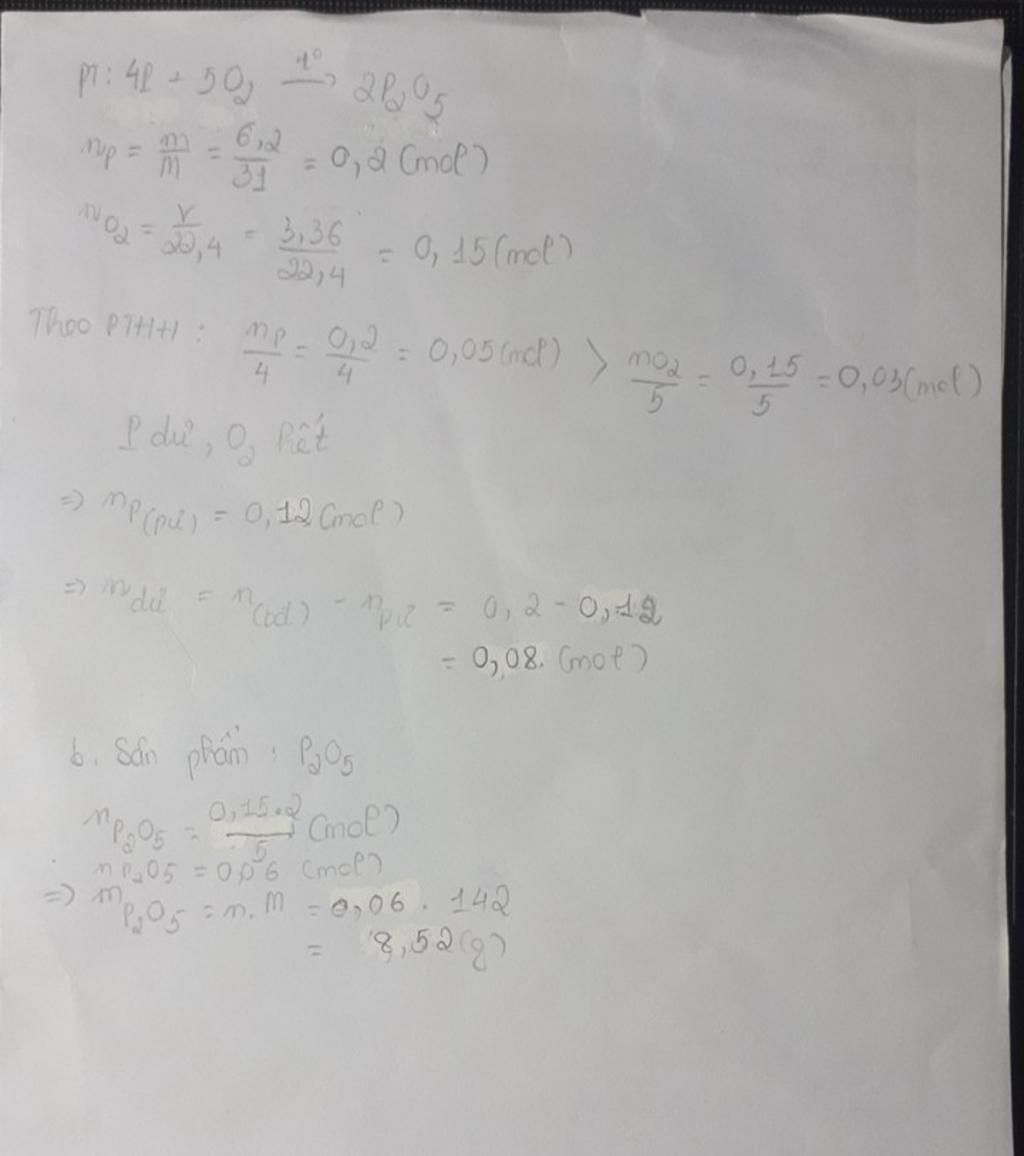 PT: 4P + 5O₂ —t°→ 2P₂O₅
nP = m/M = 6,2/31 = 0,2 (mol)
nO₂ = V/22,4 = 3,36/22,4 = 0,15 (mol)
Theo PTHH : nP/4 = 0,2/4 = 0,05 (mol) > nO₂/5 = 0,15/5 = 0,03 (mol)
P dư, O₂ hết
=> nP(pư) = 0,12 (mol)
=> n dư = n(bđ) - n pư = 0,2 - 0,12
= 0,08. (mol)
b. Sản phẩm : P₂O₅
nP₂O₅ = 0,15.2/5 (mol)
nP₂O5 = 0,06 (mol)
=> mP₂O₅ = n.M = 0,06 . 142
= 8,52 (g)